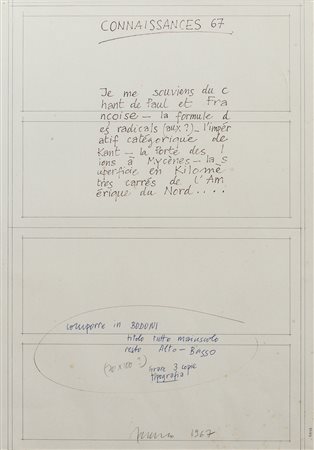 CONNAISSANCES 67
Je me souviens du c
hant de Paul et Fra
nçoise — la formule d
es radicals (aux?) _ l'impér
atif catégorique de
Kant — la Porte des l
ions à Mycènes — la s
uperficie en Kilomè
tres carrés de l'Am
érique du Nord ....
comporre in BODONI
titolo tutto maiuscolo
resto Alto - BASSO
(70x100 ?)
tirare 3 copie
tipografia
1967